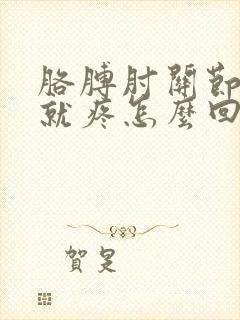 胳膊肘關節
就疼怎麼回
賀是